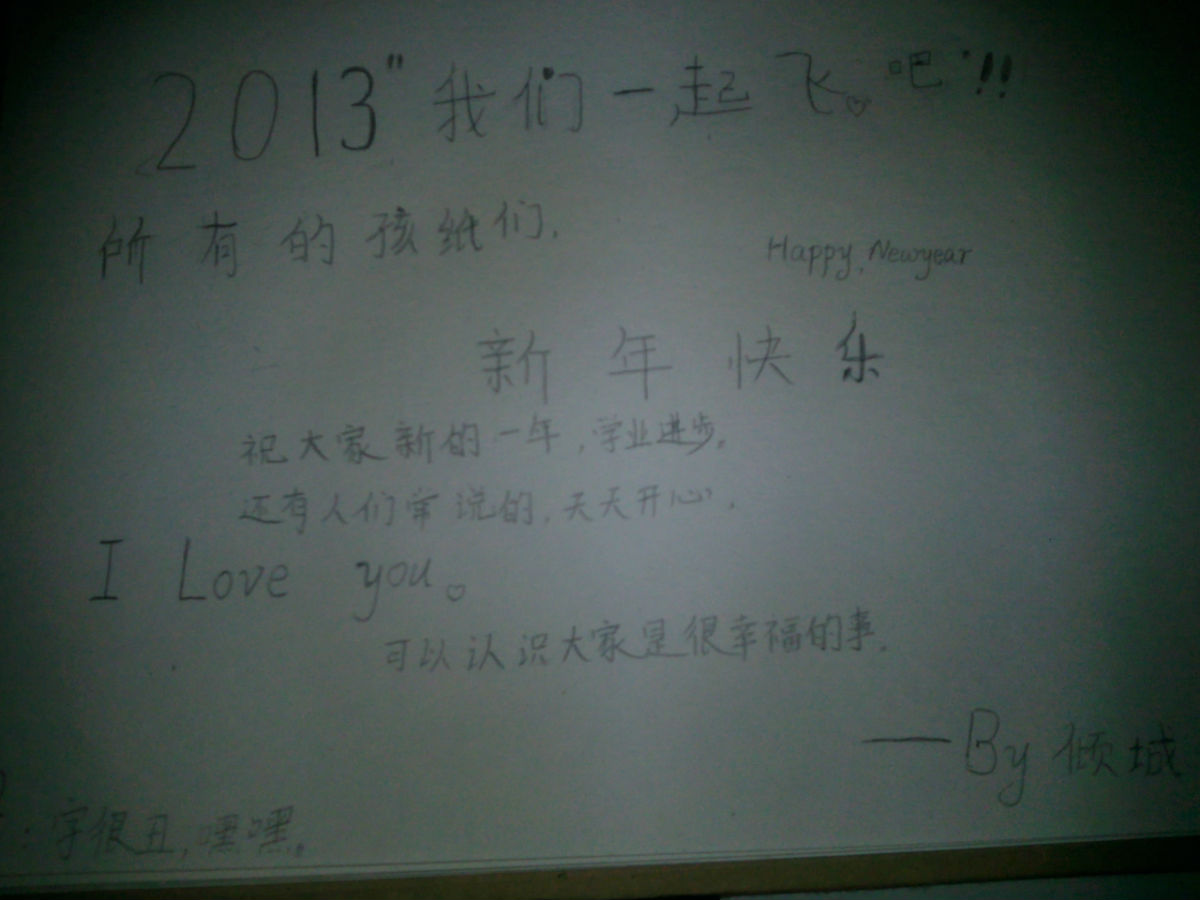 2013"我们一起飞。吧"!!
所有的孩纸们.
Happy, Newyear
新年快乐
祝大家新的一年,学业进步。
还有人们常说的,天天开心,
I Love you。
可以认识大家是很幸福的事。
——By 倾城
:字很丑,嘿嘿。